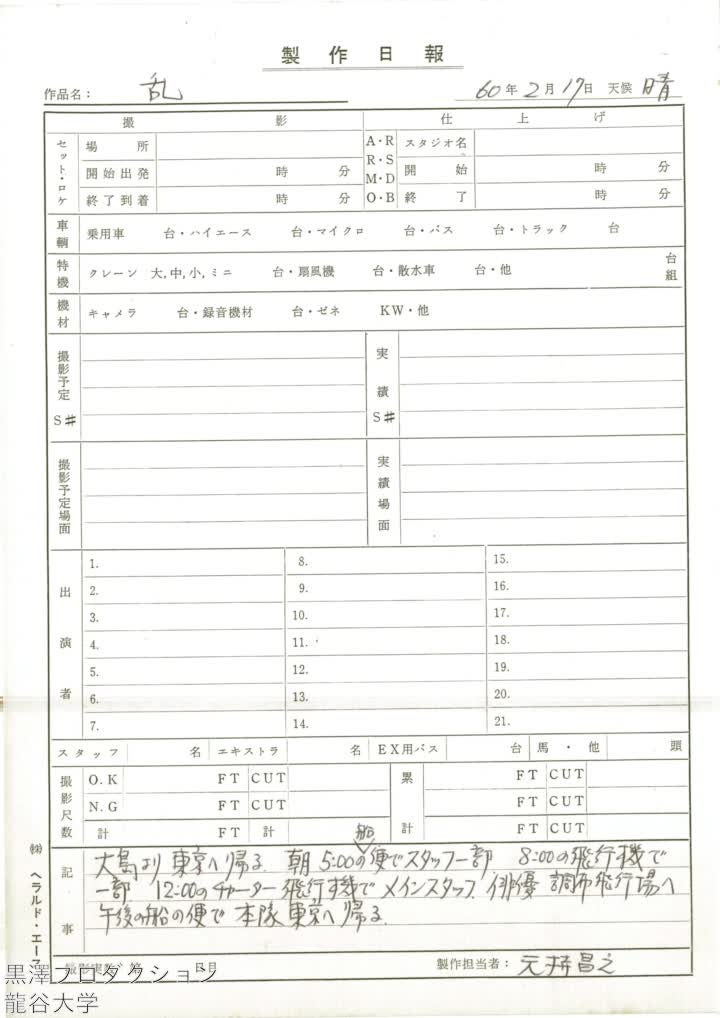 製作日報
作品名: 乱 60年2月17日 天候 晴
撮影 仕上げ
セット・ロケ 場所 A・R スタジオ名
R・S
開始出発 時 分 M・D 開始 時 分
終了到着 時 分 O・B 終了 時 分
車輌 乗用車 台・ハイエース 台・マイクロ 台・バス 台・トラック 台
特機 クレーン 大,中,小,ミニ 台・扇風機 台・散水車 台・他 台組
機材 キャメラ 台・録音機材 台・ゼネ KW・他
撮影予定S# 実績S#
撮影予定場面 実績場面
出演者
1. 8. 15.
2. 9. 16.
3. 10. 17.
4. 11. 18.
5. 12. 19.
6. 13. 20.
7. 14. 21.
スタッフ 名 エキストラ 名 EX用バス 台 馬・他 頭
撮影尺数 O.K FT CUT 累計 FT CUT
N.G FT CUT FT CUT
計 FT 計 FT CUT
船
記事 大島より東京へ帰る 朝5:00の便でスタッフ一部 8:00の飛行機で
一部 12:00のチャーター飛行機でメインスタッフ、俳優 調布飛行場へ
午後の船の便で本隊東京へ帰る
撮影実数 第 日目 製作担当者: 元持昌之
㈱ ヘラルド・エース
黒澤プロダクション
龍谷大学